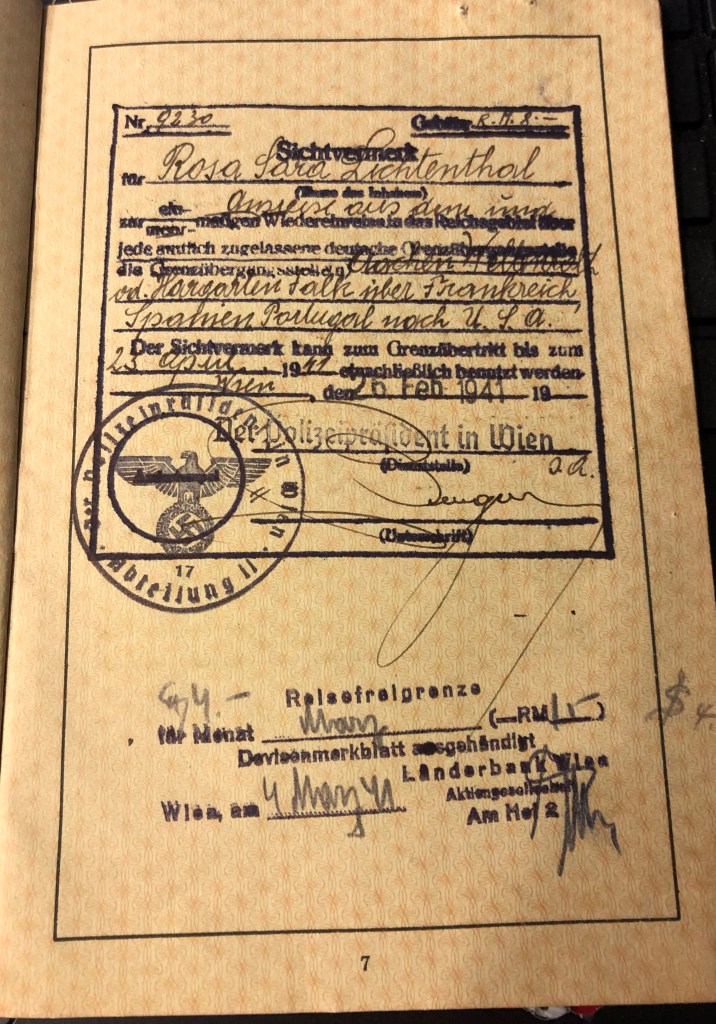 Nr. 9230 Gebühr R.M. 8.-
Sichtvermerk
für Rosa Sara Lichtenthal
(Name des Inhabers)
Ausreise aus dem und
zur ein- maligen Wiedereinreise in das Reichsgebiet über
mehr-
jede amtlich zugelassene deutsche
die Grenzübergangsstelle(n) Aachen
od. Hargarten Falk über Frankreich,
Spanien Portugal nach U.S.A.
Der Sichtvermerk kann zum Grenzübertritt bis zum
25 April 1941 einschließlich benutzt werden
Wien, den 26. Feb. 1941 19
Der Polizeipräsident in Wien
(Dienststelle)
(Unterschrift)
Der Polizeipräsident in Wien
17
Abteilung II
Reisefreigrenze
für Monat März (—RM 15)
Devisenmerkblatt ausgehändigt
Länderbank Wien
Aktiengesellschaft
Wien, am 4 März 41
Am Hof 2
$ 4
7